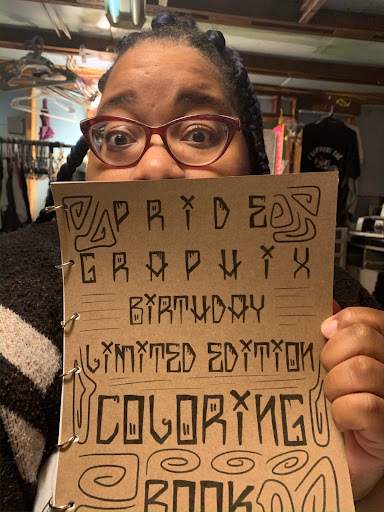 PRiDE
GRAPHiX
BiRTHDAY
LiMiTED EDiTiON
COLORiNG
BOOK